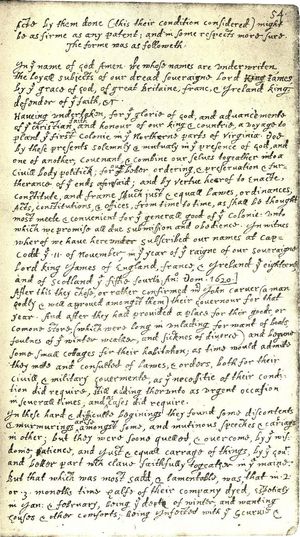 54
facts by them done (this their condition considered) might
be as firme as any patent; and in some respects more sure.
The forme was as followeth.
In yͤ name of god Amen. We whose names are underwriten,
the loyall subjects of our dread soveraigne Lord King James,
by yͤ grace of god, of great Britaine, franc, & Ireland king,
defender of yͤ faith, &c.
Haveing undertaken, for yͤ glorie of god, and advancemente
of yͤ christian faith and honour of our king & countrie, a voyage to
plant yͤ first colonie in yͤ Northerne parts of Virginia. Doe
by these presents solemnly & mutualy in yͤ presence of god, and
one of another, covenant, & combine our selves togeather into a
civill body politick; for our better ordering, & preservation & fur=
therance of yͤ ends aforesaid; and by vertue hearof to enacte,
constitute, and frame such just & equall lawes, ordinances,
acts, constitutions, & offices, from time to time, as shall be thought
most meete & convenient for yͤ generall good of yͤ Colonie: unto
which we promise all due submission and obedience. In witnes
wherof we have hereunder subscribed our names at Cap=
Codd yͤ ·11· of November, in yͤ year of yͤ raigne of our soveraigne
Lord king James of England, france, & Ireland yͤ eighteenth
and of Scotland yͤ fiftie fourth. Anͦ: Dom ·1620·]
After this they chose, or rather confirmed mͬ John Carver (a man
godly & well approved amongst them) their Governour for that
year. And after they had provided a place for their goods, or
comone store, (which were long in unlading for want of boats,
foulnes of yͤ winter weather, and sicknes of diverce) and begune
some small cottages for their habitation; as time would admitte
they mette and consulted of lawes, & orders, both for their
civill, & military Govermente, as yͤ necessitie of their condi=
tion did require, still adding therunto as urgent occasion
in severall times, and as cases did require.
In these hard & difficulte beginings they found some discontents
& murmurings arise amongst some, and mutinous speeches & cariags
in other; but they were soone quelled, & overcome, by yͤ wis=
dome, patience, and just & equall carrage of things, by yͤ Govͬ
and better part wͨʰ clave faithfully togeather in yͤ maine.
But that which was most sadd, & lamentable, was, that in ·2·
or ·3· moneths time halfe of their company dyed, espetialy
in Jan: & february, being yͤ depth of winter, and wanting
houses & other comforts; being infected with yͤ scurvie &